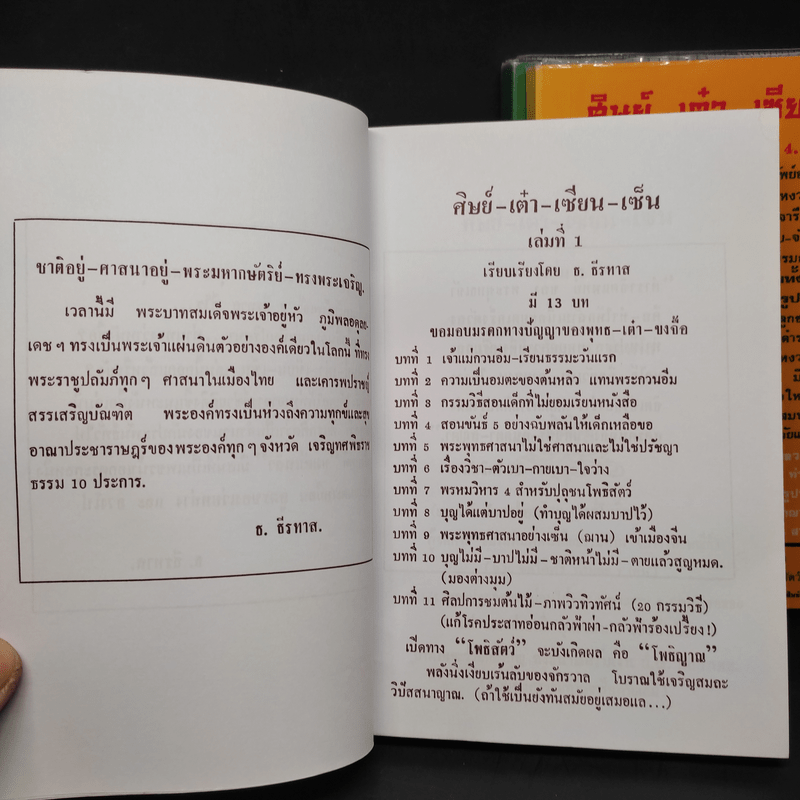 ชาติอยู่-ศาสนาอยู่-พระมหากษัตริย์-ทรงพระเจริญ.
เวลานี้มี พระบาทสมเด็จพระเจ้าอยู่หัว ภูมิพลอดุลย
เดช ฯ ทรงเป็นพระเจ้าแผ่นดินตัวอย่างองค์เดียวในโลกนี้ ที่ทรง
พระราชูปถัมภ์ทุก ๆ ศาสนาในเมืองไทย และเคารพปราชญ์
สรรเสริญบัณฑิต พระองค์ทรงเป็นห่วงถึงความทุกข์และสุข
อาณาประชาราษฎร์ของพระองค์ทุก ๆ จังหวัด เจริญทศพิธราช
ธรรม 10 ประการ.
ธ. ธีรทาส.
ศิษย์-เต๋า-เซียน-เซ็น
เล่มที่ 1
เรียบเรียงโดย ธ. ธีรทาส
มี 13 บท
ขอมอบมรดกทางปัญญาของพุทธ-เต๋า-ขงจื๊อ
บทที่ 1 เจ้าแม่กวนอิม-เรียนธรรมะวันแรก
บทที่ 2 ความเป็นอมตะของต้นหลิว แทนพระกวนอิม
บทที่ 3 กรรมวิธีสอนเด็กที่ไม่ยอมเรียนหนังสือ
บทที่ 4 สอนขันธ์ 5 อย่างฉับพลันให้เด็กเหลือขอ
บทที่ 5 พระพุทธศาสนาไม่ใช่ศาสนาและไม่ใช่ปรัชญา
บทที่ 6 เรื่องวิชา-ตัวเบา-กายเบา-ใจว่าง
บทที่ 7 พรหมวิหาร 4 สำหรับปุถุชนโพธิสัตว์
บทที่ 8 บุญได้แต่บาปอยู่ (ทำบุญได้ผสมบาปไว้)
บทที่ 9 พระพุทธศาสนาอย่างเซ็น (ฌาน) เข้าเมืองจีน
บทที่ 10 บุญไม่มี-บาปไม่มี-ชาติหน้าไม่มี-ตายแล้วสูญหมด.
(มองต่างมุม)
บทที่ 11 ศิลปการชมต้นไม้-ภาพวิวทิวทัศน์ (20 กรรมวิธี)
(แก้โรคประสาทอ่อนกลัวฟ้าผ่า-กลัวฟ้าร้องเปรี้ยง!)
เปิดทาง “โพธิสัตว์” จะบังเกิดผล คือ “โพธิญาณ”
พลังนิ่งเงียบเร้นลับของจักรวาล โบราณใช้เจริญสมถะ
วิปัสสนาญาณ. (ถ้าใช้เป็นยังทันสมัยอยู่เสมอแล...)
ศิษย์ เต๋า เซีย
4.